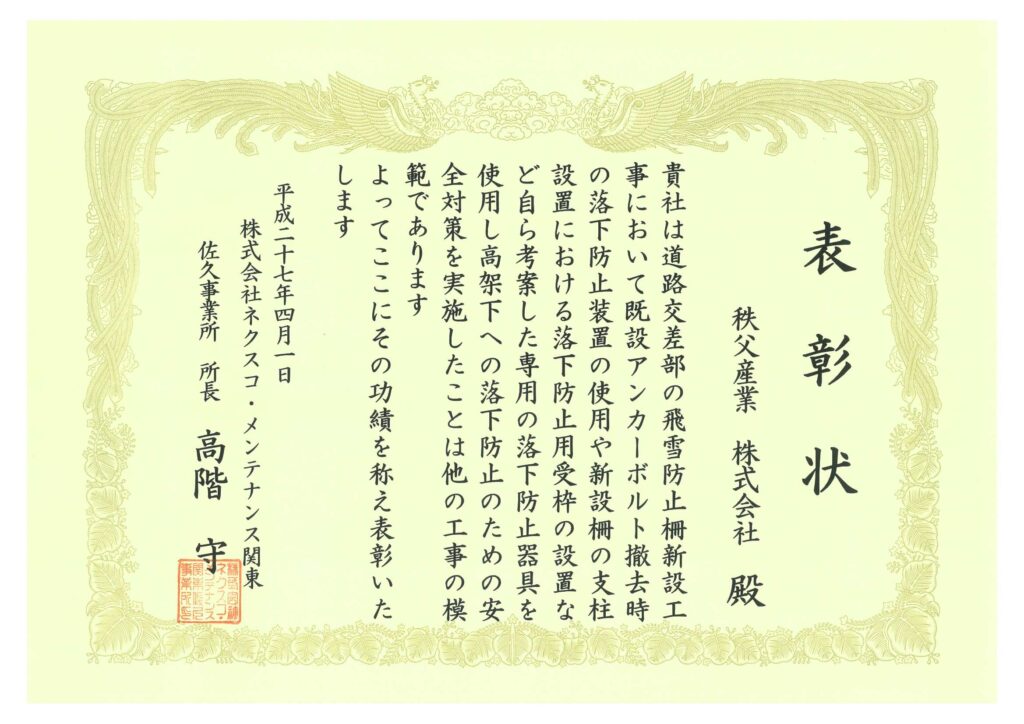 表彰状
秩父産業 株式会社 殿
貴社は道路交差部の飛雪防止柵新設工
事において既設アンカーボルト撤去時
の落下防止装置の使用や新設柵の支柱
設置における落下防止用受枠の設置な
ど自ら考案した専用の落下防止器具を
使用し高架下への落下防止のための安
全対策を実施したことは他の工事の模
範であります
よってここにその功績を称え表彰いた
します
平成二十七年四月一日
株式会社ネクスコ・メンテナンス関東
佐久事業所 所長 高階 守